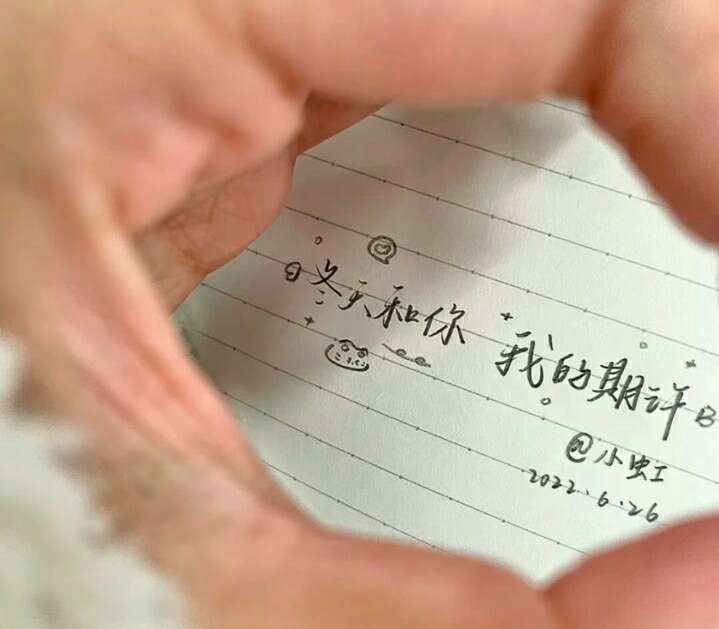 冬天和你 我的期许
@小虹
2022.6.26